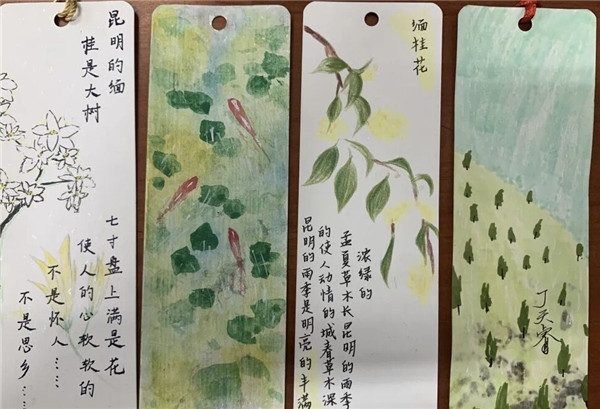 昆明的缅
桂是大树
七寸盘上满是花
使人的心软软的
不是怀人……
不是思乡……
缅桂花
昆明的雨季是明亮的丰满
的使人动情的城春草木深
孟夏草木长昆明的雨季
浓绿的
丁天睿